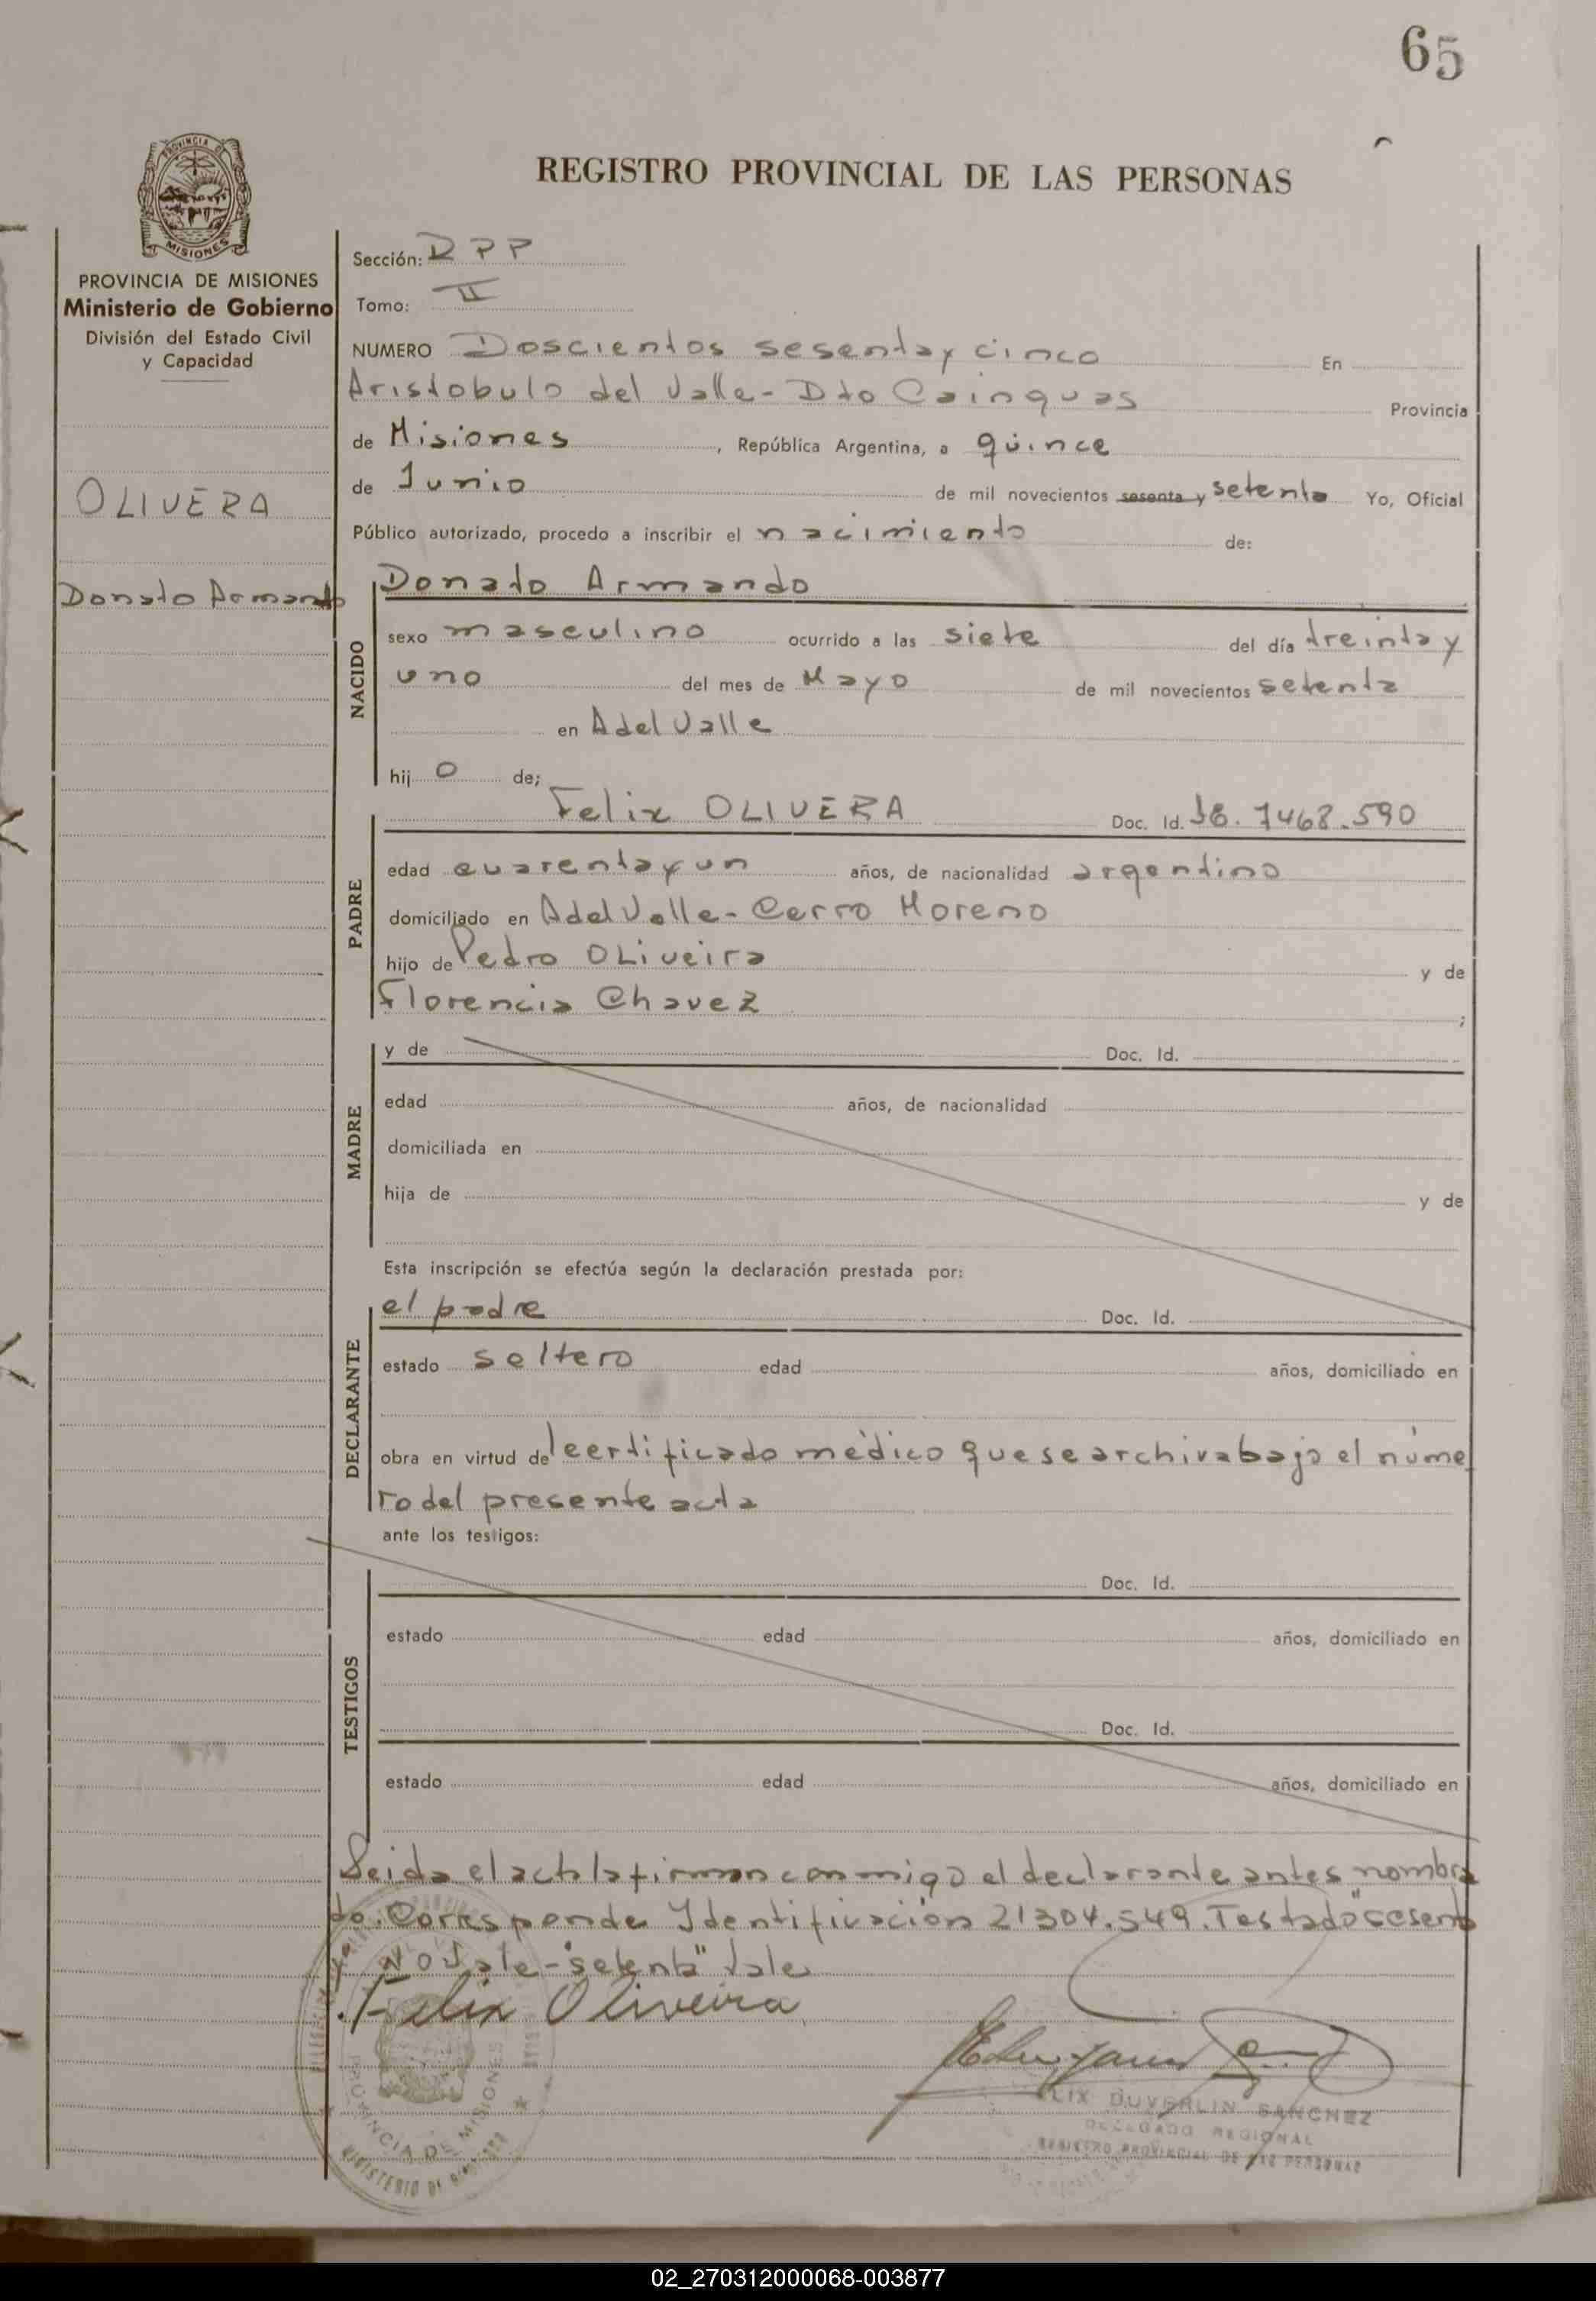 65
REGISTRO PROVINCIAL DE LAS PERSONAS
PROVINCIA DE
MISIONES
PROVINCIA DE MISIONES
Ministerio de Gobierno
División del Estado Civil
y Capacidad
OLIVERA
Donato Armando
Sección: DPP
Tomo: II
NUMERO Doscientos sesenta y cinco En
Aristobulo del Valle - Dto Cainguas Provincia
de Misiones, República Argentina, a quince
de Junio de mil novecientos sesenta y setenta Yo, Oficial
Público autorizado, procedo a inscribir el nacimiento de:
NACIDO
Donato Armando
sexo masculino ocurrido a las siete del día treinta y
uno del mes de Mayo de mil novecientos setenta
en A del Valle
hijo de;
PADRE
Felix OLIVERA Doc. Id. 7468.590
edad cuarenta y un años, de nacionalidad argentino
domiciliado en A del Valle - Cerro Moreno
hijo de Pedro OLiveira y de
Florencia Chavez ;
MADRE
y de Doc. Id.
edad años, de nacionalidad
domiciliada en
hija de y de
Esta inscripción se efectúa según la declaración prestada por:
DECLARANTE
el padre Doc. Id.
estado soltero edad años, domiciliado en
obra en virtud del certificado médico que se archiva bajo el núme
ro del presente acta
ante los testigos:
TESTIGOS
Doc. Id.
estado edad años, domiciliado en
Doc. Id.
estado edad años, domiciliado en
Leida el acta la firman conmigo el declarante antes nombra
do. Corresponde Identificación 21304.549. Testado "sesenta
y" NO Vale - "setenta" Vale
Felix Oliveira
PROVINCIA DE MISIONES
MINISTERIO DE GOBIERNO
LIX DUVERLIN SANCHEZ
DELEGADO REGIONAL
REGISTRO PROVINCIAL DE LAS PERSONAS
02_270312000068-003877